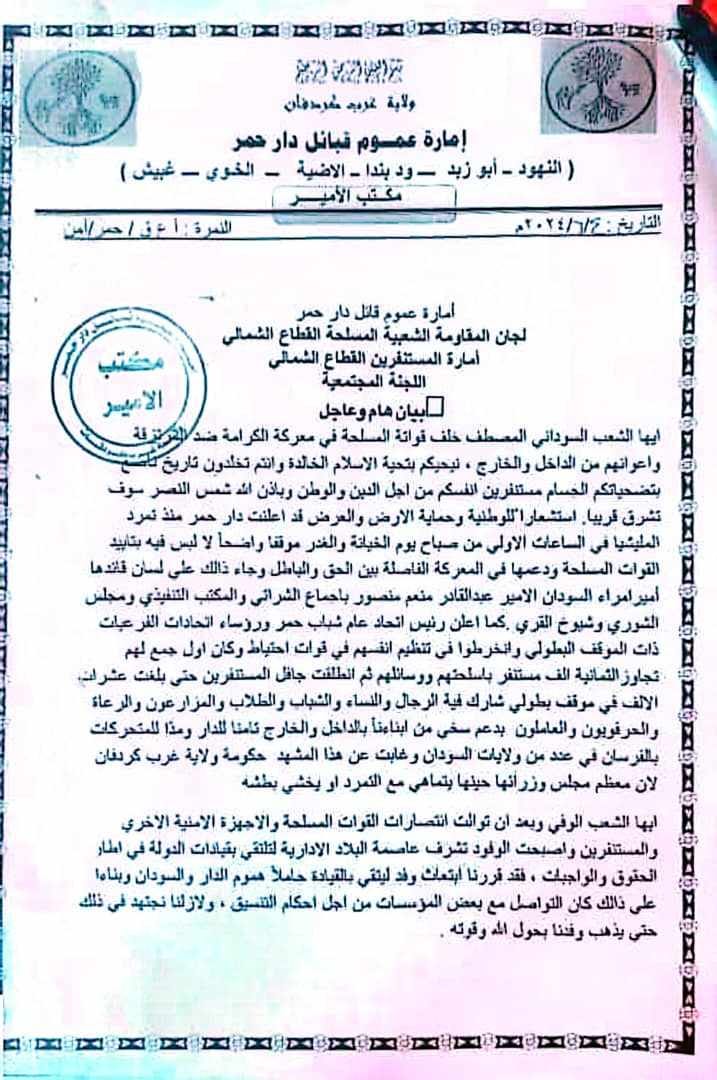 بسم الله الرحمن الرحيم
ولاية غرب كردفان
إمارة عموم قبائل دار حمر
( النهود ـ أبو زبد ـــ ود بندا ـ الاضية ـــ الخوي ـــ غبيش )
مكتب الأمير
التاريخ : ٢٠٢٤/٦/م النمرة : أ ع ق / حمر/أمن
أمارة عموم قائل دار حمر
لجان المقاومة الشعبية المسلحة القطاع الشمالي
أمارة المستنفرين القطاع الشمالي
اللجنة المجتمعية
مكتب
الامير
بيان هام وعاجل
ايها الشعب السوداني المصطف خلف قواتة المسلحة في معركة الكرامة ضد المرتزقة
واعوانهم من الداخل والخارج ، نحييكم بتحية الاسلام الخالدة وانتم تخلدون تاريخ ناصع
بتضحياتكم الجسام مستنفرين انفسكم من اجل الدين والوطن وباذن الله شمس النصر سوف
تشرق قريبا. استشعارا للوطنية وحماية الارض والعرض قد اعلنت دار حمر منذ تمرد
المليشيا في الساعات الاولي من صباح يوم الخيانة والغدر موقفا واضحاً لا لبس فيه بتاييد
القوات المسلحة ودعمها في المعركة الفاصلة بين الحق والباطل وجاء ذالك علي لسان قائدها
أمير امراء السودان الامير عبدالقادر منعم منصور باجماع الشراتي والمكتب التنفيذي ومجلس
الشوري وشيوخ القري .كما اعلن رئيس اتحاد عام شباب حمر ورؤساء اتحادات الفرعيات
ذات الموقف البطولي وانخرطوا في تنظيم انفسهم في قوات احتياط وكان اول جمع لهم
تجاوز الثمانية الف مستنفر باسلحتهم ووسائلهم ثم انطلقت جافل المستنفرين حتي بلغت عشرات
الالف في موقف بطولي شارك فية الرجال والنساء والشباب والطلاب والمزارعون والرعاة
والحرفويون والعاملون بدعم سخي من ابناءناً بالداخل والخارج تامنا للدار ومدًا للمتحركات
بالفرسان في عدد من ولايات السودان وغابت عن هذا المشهد حكومة ولاية غرب كردفان
لان معظم مجلس وزرائها حينها يتماهي مع التمرد او يخشي بطشه
ايها الشعب الوفي وبعد ان توالت انتصارات القوات المسلحة والاجهزة الامنية الاخري
والمستنفرين واصبحت الوفود تشرف عاصمة البلاد الادارية لتلتقي بقيادات الدولة في اطار
الحقوق والواجبات ، فقد قررنا أبتعاث وفد ليتقي بالقيادة حاملاً هموم الدار والسودان وبناءا
على ذالك كان التواصل مع بعض المؤسسات من اجل احكام التنسيق ، ولازلنا نجتهد في ذلك
حتي يذهب وفدنا بحول الله وقوته .